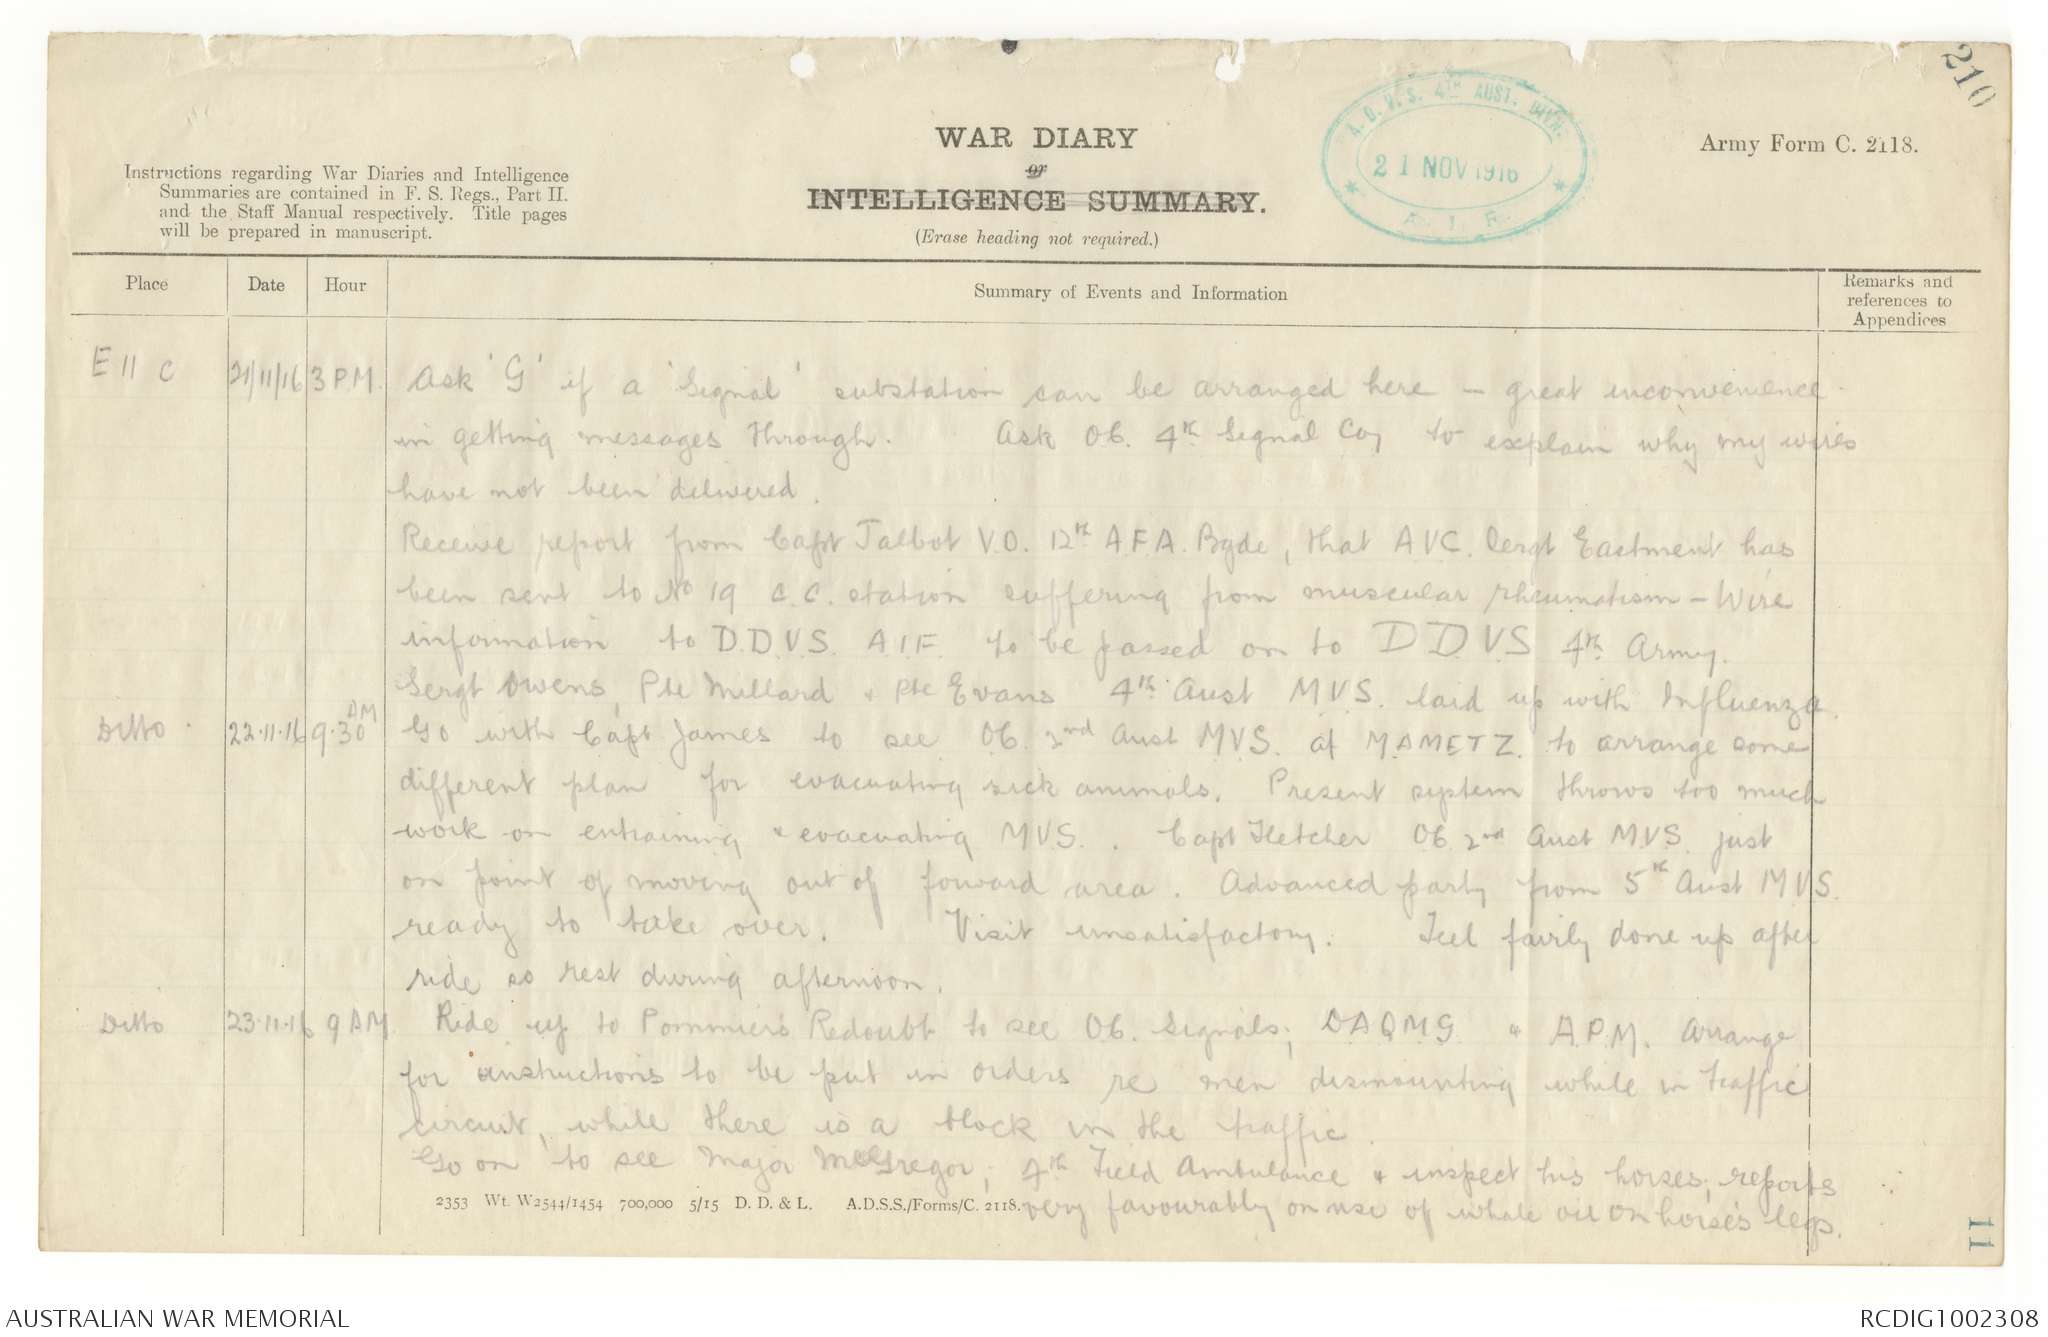 210
A. D. V. S. 4TH AUST. DIVN.
21 NOV 1916
A. I. F.
WAR DIARY
or
INTELLIGENCE SUMMARY.
(Erase heading not required.)
Army Form C. 2118.
Instructions regarding War Diaries and Intelligence
Summaries are contained in F. S. Regs., Part II.
and the Staff Manual respectively. Title pages
will be prepared in manuscript.
Place Date Hour Summary of Events and Information Remarks and references to Appendices
E 11 c 21/11/16 3 PM. Ask 'G' if a 'Signal' substation can be arranged here – great inconvenience
in getting messages through. Ask OC. 4th Signal Coy to explain why my wires
have not been delivered.
Receive report from Capt Talbot V.O. 12th A.F.A. Bgde, that AVC. Sergt Eastment has
been sent to No 19 C.C. station suffering from muscular rheumatism – Wire
information to D.D.V.S. A.I.F. to be passed on to DDVS 4th Army.
Sergt Owens, Pte Millard & Pte Evans 4th Aust M.V.S. laid up with Influenza.
Ditto. 22.11.16 9.30 AM Go with Capt James to see OC. 2nd Aust MVS. at MAMETZ. to arrange some
different plan for evacuating sick animals. Present system throws too much
work on entraining & evacuating MVS. . Capt Fletcher OC 2nd Aust MVS. just
on point of moving out of forward area. Advanced party from 5th Aust MVS.
ready to take over. Visit unsatisfactory. Feel fairly done up after
ride so rest during afternoon.
Ditto 23.11.16 9 AM Ride up to Pommiers Redoubt to see OC. Signals; DAQMG & A.P.M. Arrange
for instructions to be put in orders re men dismounting while in traffic
circuit, while there is a block in the traffic.
Go on to see Major McGregor, 4th Field Ambulance & inspect his horses, reports
very favourably on use of whale oil on horse's legs.
2353 Wt. W2544/1454 700,000 5/15 D. D. & L. A.D.S.S./Forms/C. 2118.
11
AUSTRALIAN WAR MEMORIAL
RCDIG1002308